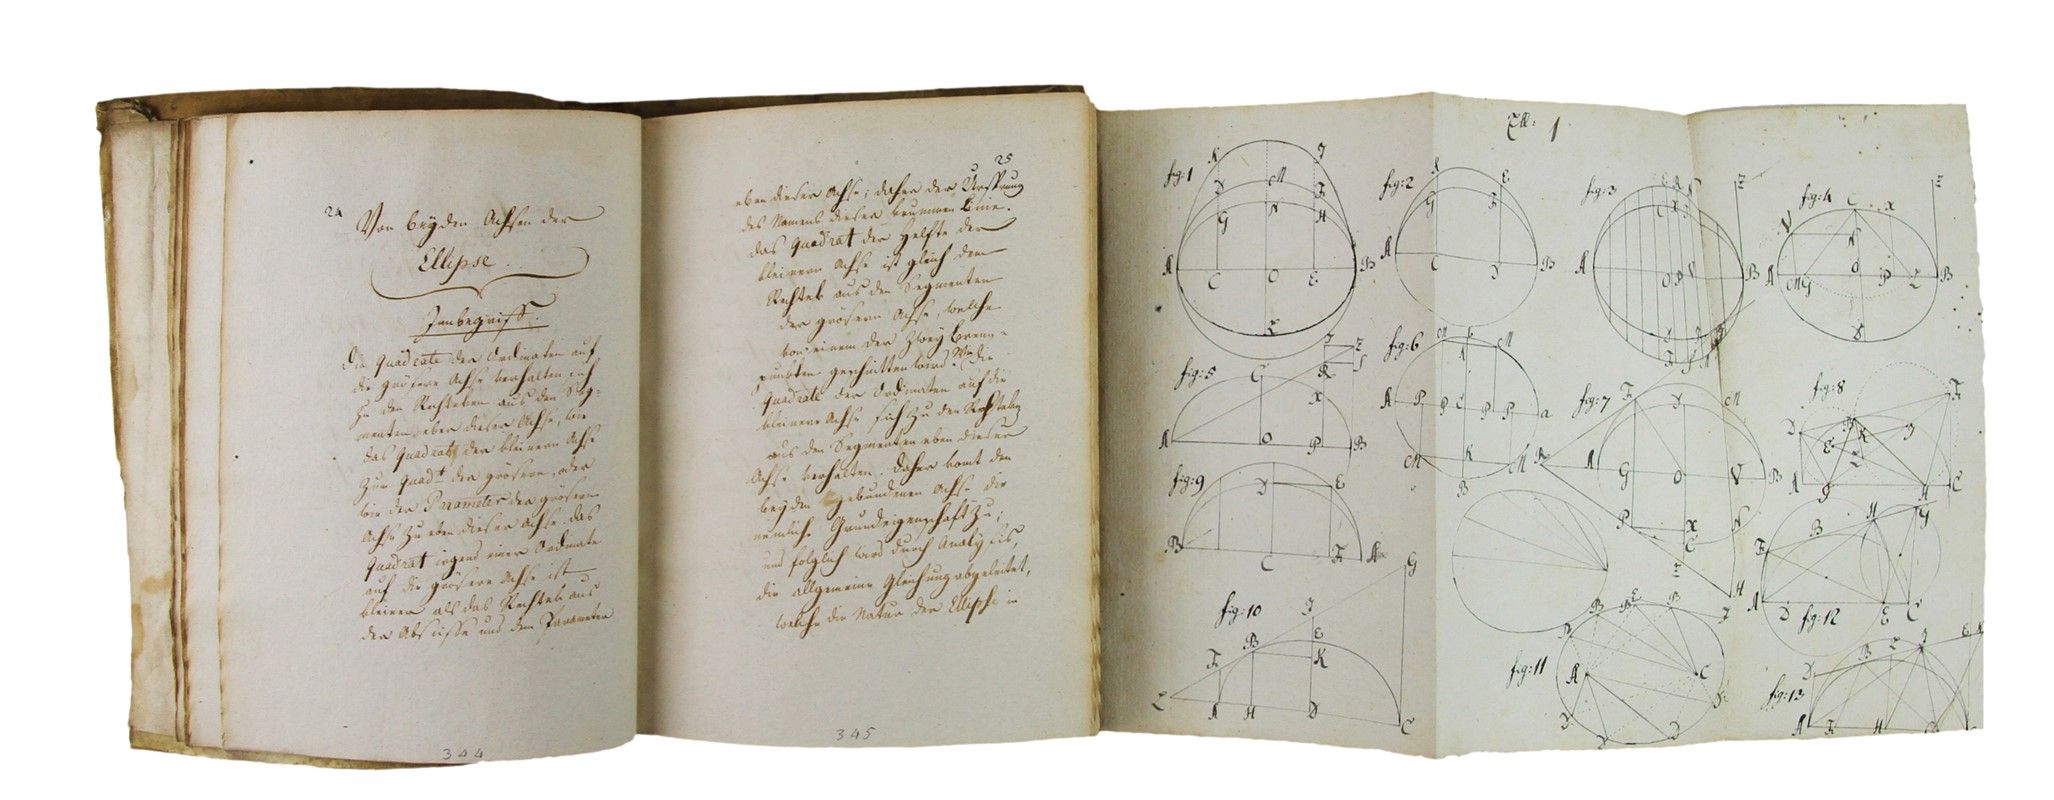 24
Von beyden Achsen der
Ellipse.
Innbegriff.
Die Quadrate der Ordinaten auf
die grösere Achse verhalten sich
zu den Rechteken aus den Seg-
menten eben dieser Achse, wie
das Quadrat der kleinern Achse
zum Quadt der grösern, oder
wie der Parameter der grösern
Achse zu eben dieser Achse. das
Quadrat irgend einer Ordinate
auf die grösere Achse ist
kleiner als das Rechtek aus
der Abscisse und dem Parameter
344
25
eben dieser Achse; daher der Ursprung
des Namens dieser krummen Linie.
das Quadrat der Helfte der
kleinern Achse ist gleich dem
Rechtek aus den Segmenten
der grösern Achse, welche
von einem der zwey Brenn-
punkten geschnitten wird. Wie die
Quadrate der Ordinaten auf die
kleinere Achse sich zu den Rechteken
aus den Segmenten eben dieser
Achse verhalten. Daher komt den
beyden gebundenen Achse die
nemliche Grundeigenschaft zu;
und folglich wird durch Analysis
die allgemeine Gleichung abgeleitet,
welche die Natur der Ellipse in
345
Ell: 1
fig:1
K
I
D
M
F
G
N
H
A
C
O
E
B
L
fig:2
K
E
G
F
A
C
D
B
fig:3
Z
A
O
B
fig:4
C
X
Z
V
N
A
M
G
O
P
L
B
D
fig:5
G
I
Z
K
S
X
A
O
P
B
fig:6
M
b
M
A
P
P
C
P
P
a
M
K
M
B
fig:7
F
D
M
R
A
G
O
V
B
P
X
N
C
H
fig:8
F
D
B
E
K
I
L
A
G
H
C
fig:9
D
E
B
C
F
A
fig:10
G
I
E
B
K
F
L
A
H
D
C
fig:11
B
E
B
I
A
C
D
fig:12
H
G
B
F
A
D
E
C
fig:13
D
B
L
I
E
K
A
F
H